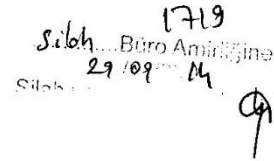 1719
Silah....Büro Amirliğine
29/09 14
Silah